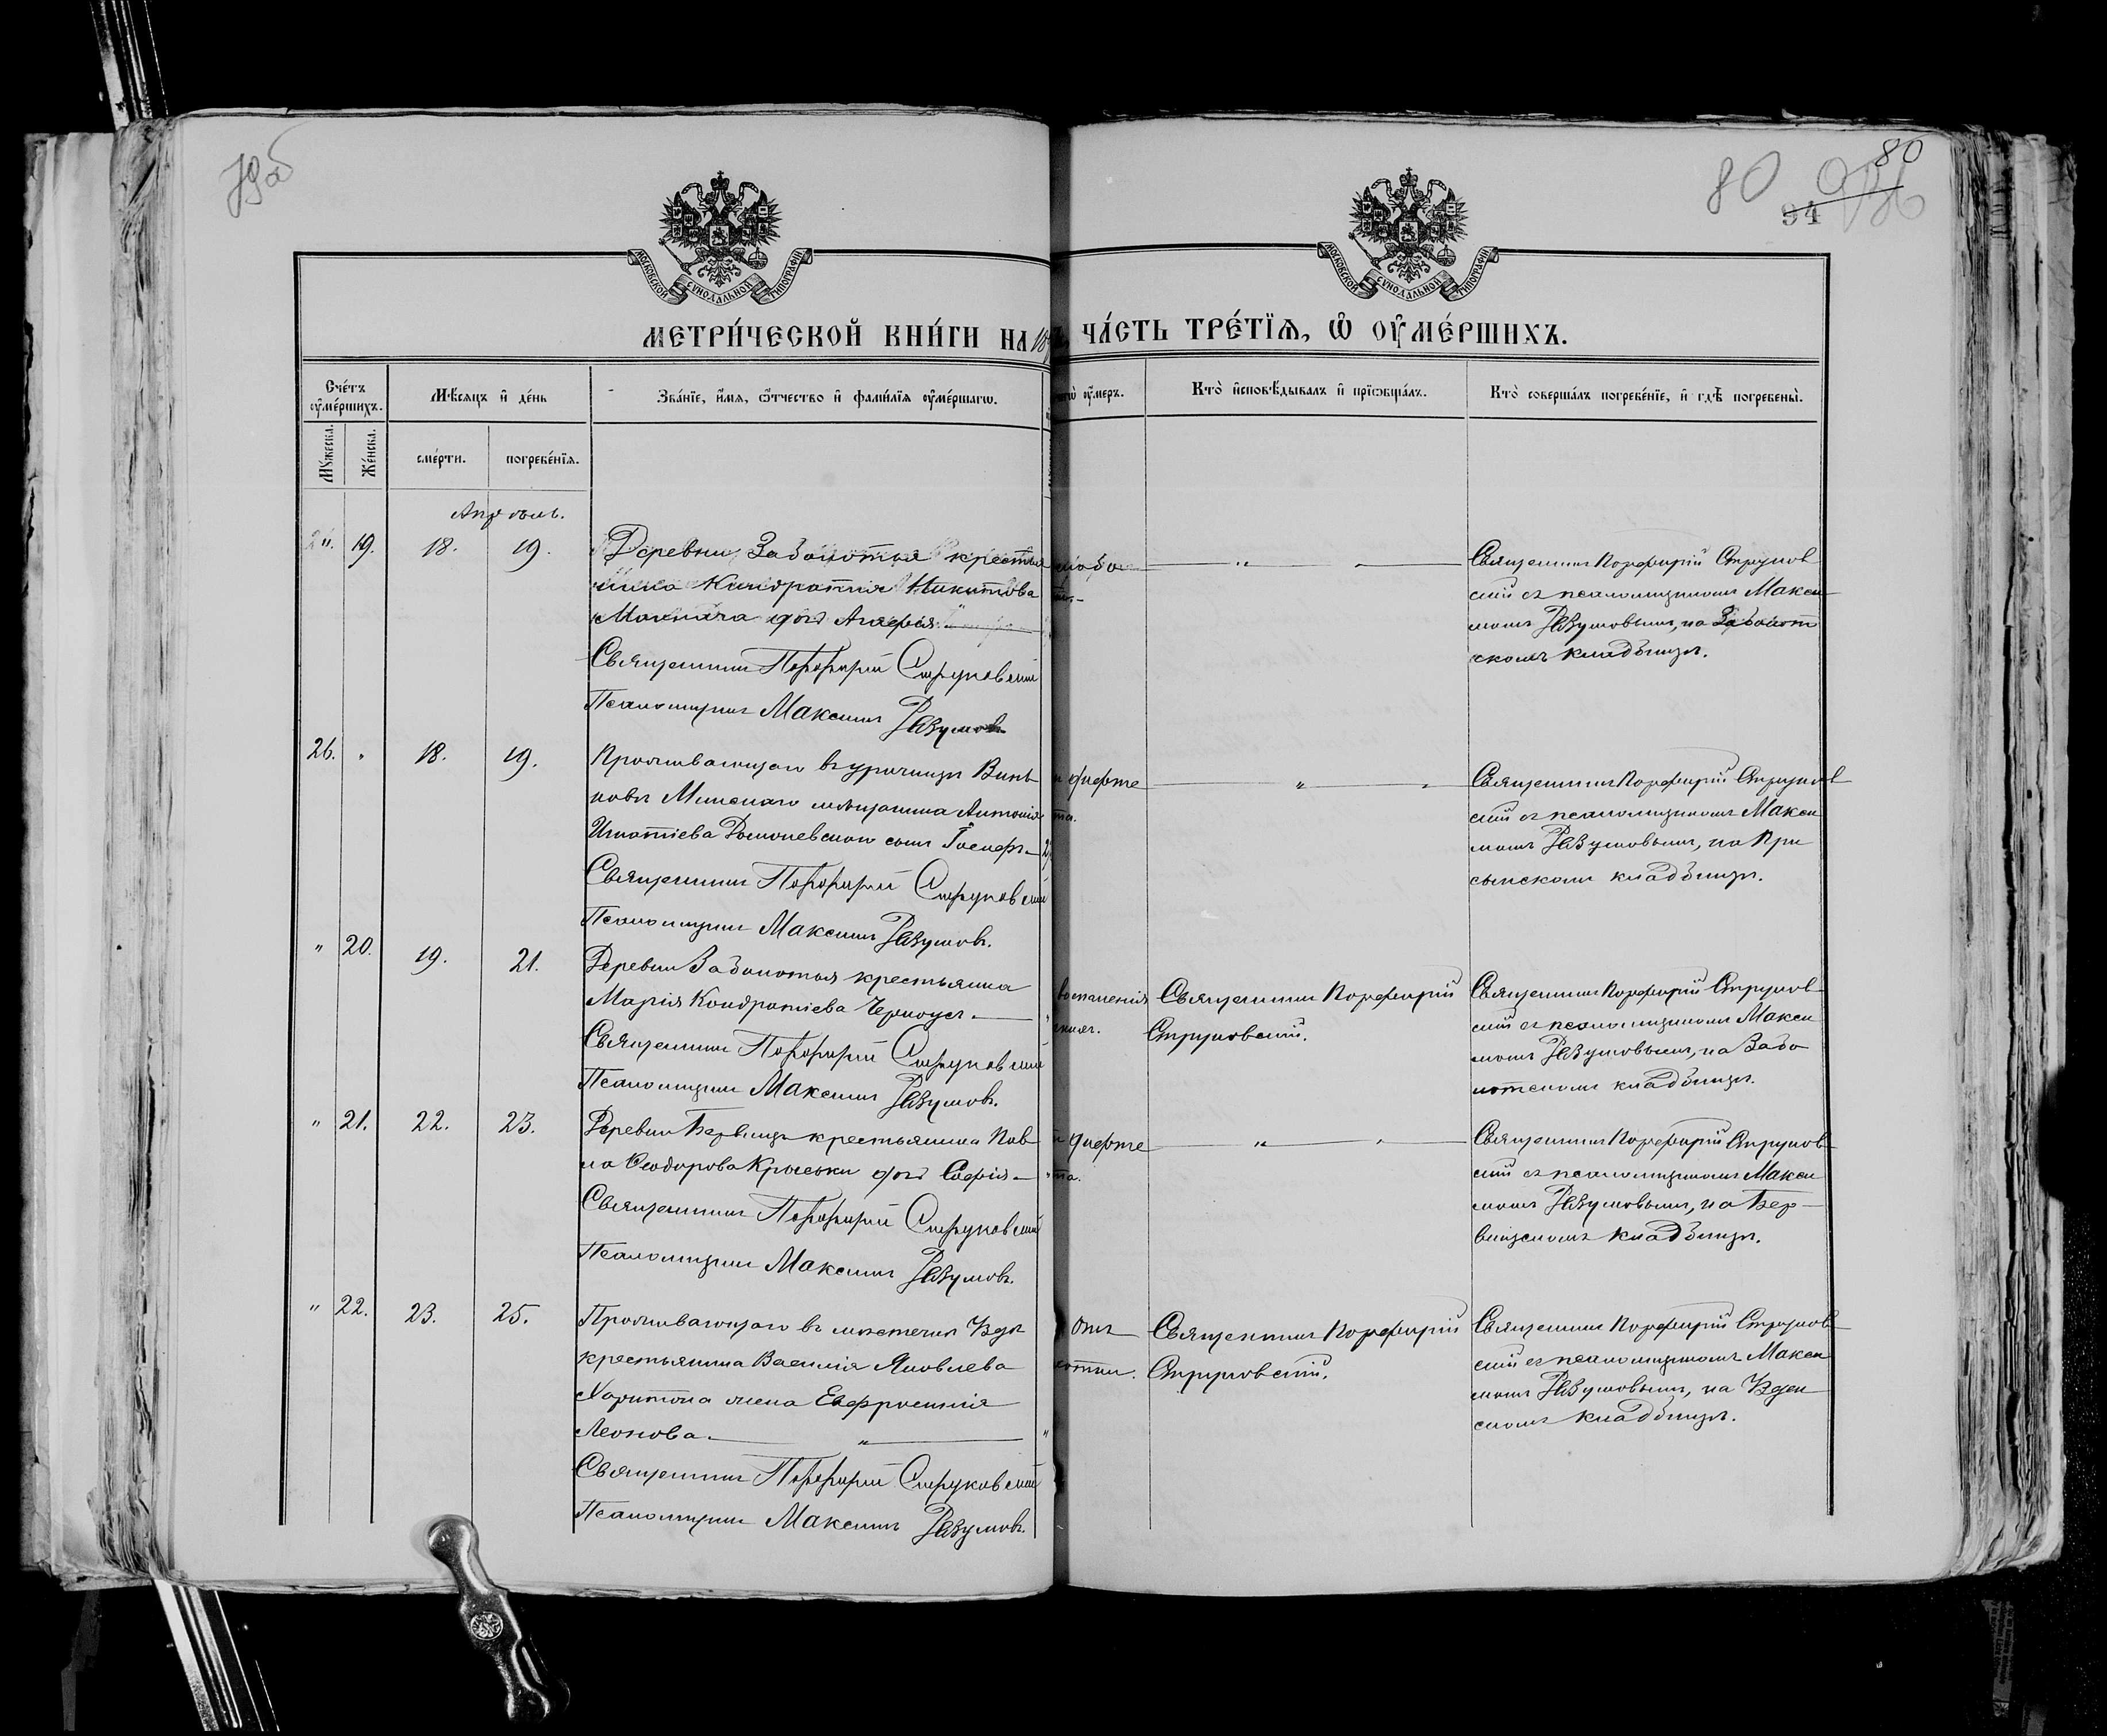 79 об
80
80
94
МОСКОВСКОЙ СѴНОДАЛЬНОЙ ТИПОГРАФІИ
МОСКОВСКОЙ СѴНОДАЛЬНОЙ ТИПОГРАФІИ
МЕТРИ́ЧЕСКОЙ КНИ́ГИ НА 18
ЧА́СТЬ ТРЕ́ТЇѦ, Ѡ҆ ОУ҆МЕ́РШИХЪ.
Сче́тъ оу҆ме́ршихъ.
Мѣ́сяцъ и҆ де́нь
Зва́нїе, и҆́мя, ѻ҆́тчество и҆ фами́лїя оу҆ме́ршагѡ.
оу҆́меръ.
Кто̀ и҆сповѣ́дывалъ и҆ прїѡбща́лъ.
Кто̀ соверша́лъ погребе́нїе, и҆ гдѣ̀ погребены̀.
Мꙋ́жеска.
Же́нска.
сме́рти.
погребе́нїя.
Апрѣль.
" 19. 18. 19.
Деревни Заболотья крестья
нина Кондратія Никитова
дочь Агафія
Священникъ Порфирій Струковскій
Псаломщикъ Максимъ Разумовъ
Священникъ Порфирій Струков
скій съ псаломщикомъ Макси
момъ Разумовымъ, на Заболот
скомъ кладбищѣ.
26. " 18. 19.
Проживающаго въ урочищѣ
Минскаго мѣщанина Антонія
Игнатіева сынъ Іосифъ
Священникъ Порфирій Струковскій
Псаломщикъ Максимъ Разумовъ.
дифте
та.
Священникъ Порфирій Струков
скій съ псаломщикомъ Макси
момъ Разумовымъ, на При
сынскомъ кладбищѣ.
" 20. 19. 21.
Деревни Заболотья крестьянка
Марія Кондратіева Черноус
Священникъ Порфирій Струковскій
Псаломщикъ Максимъ Разумовъ.
воспаленія
Священникъ Порфирій
Струковскій.
Священникъ Порфирій Струков
скій съ псаломщикомъ Макси
момъ Разумовымъ, на Забо
лотскомъ кладбищѣ.
" 21. 22. 23.
Деревни крестьянина Пав
ла Ѳеодорова дочь Софія
Священникъ Порфирій Струковскій
Псаломщикъ Максимъ Разумовъ.
дифте
та.
Священникъ Порфирій Струков
скій съ псаломщикомъ Макси
момъ Разумовымъ, на Бер
вищскомъ кладбищѣ.
" 22. 23. 25.
Проживающаго въ мѣстечкѣ Уздѣ
крестьянина Василія Яковлева
Харитона жена Евфросинія
Леонова
Священникъ Порфирій Струковскій
Псаломщикъ Максимъ Разумовъ.
Священникъ Порфирій
Струковскій.
Священникъ Порфирій Струков
скій съ псаломщикомъ Макси
момъ Разумовымъ, на Узден
скомъ кладбищѣ.